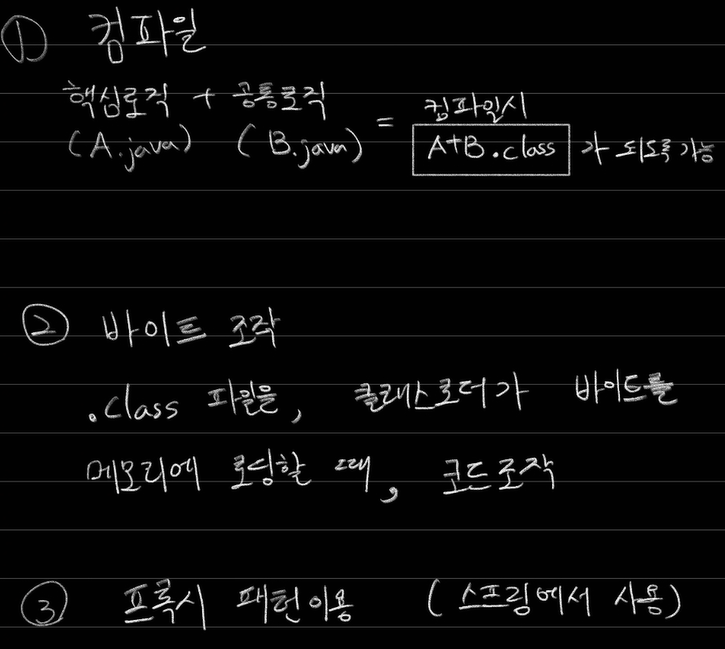 ① 컴파일
핵심로직 + 공통로직 = 컴파일시
(A.java) (B.java) A+B.class 가 되도록 가능
② 바이트 조작
.class 파일을, 클래스로더가 바이트를
메모리에 로딩할 때, 코드조작
③ 프록시 패턴이용 (스프링에서 사용)